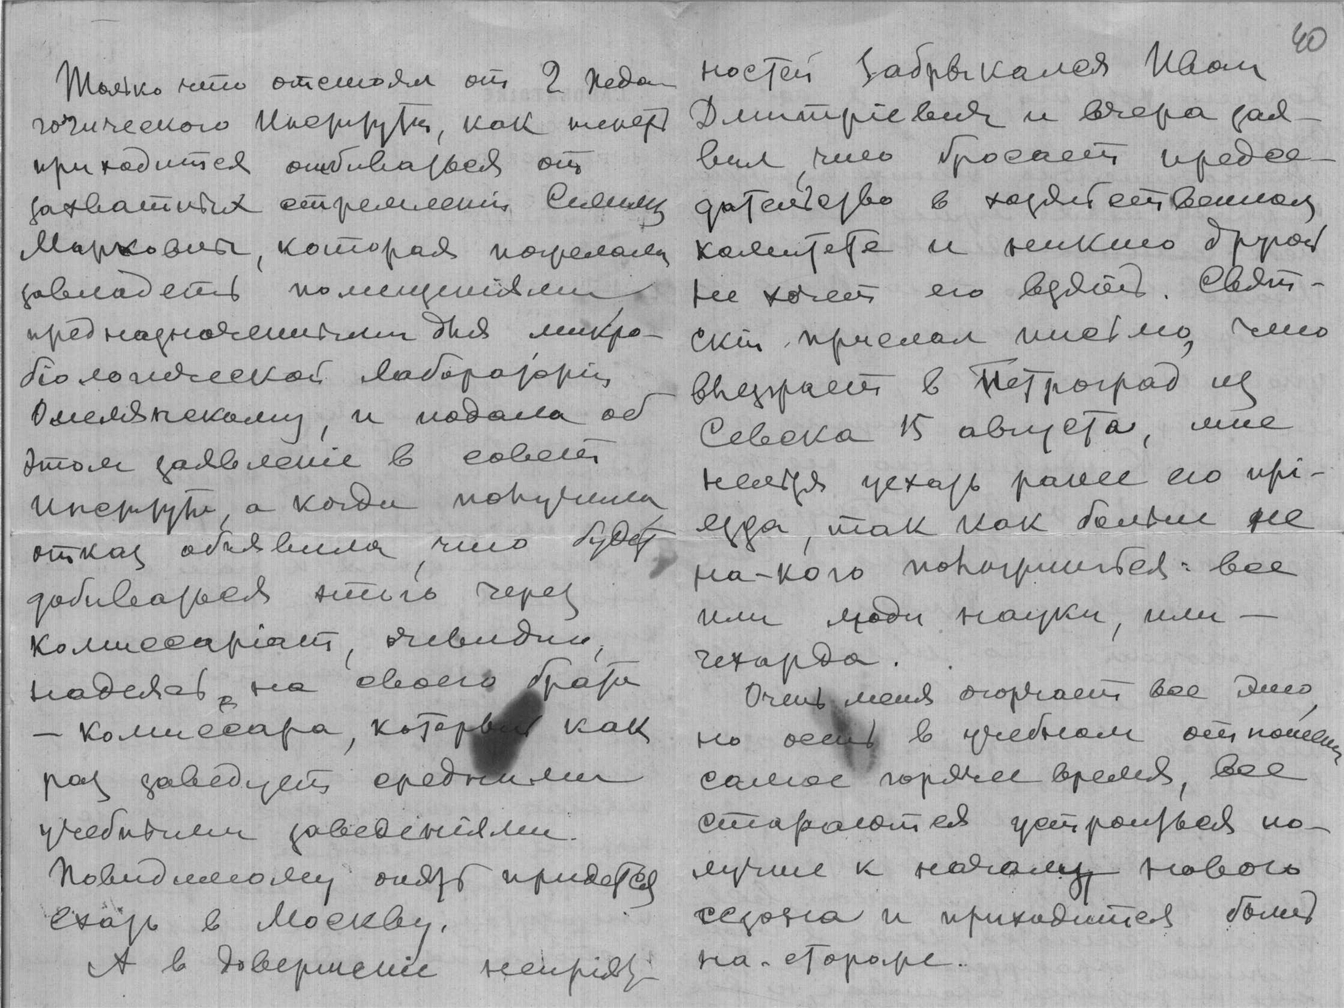 Только что отстояли от 2 Педа-
гогического Института, как теперь
приходится отбиваться от
захватных стремленій Селины
Марковны, которая пожелала
завладеть помещеніями
предназначенными для микро-
біологической лабораторіи
Омелянскому, и подала об
этом заявленіе в совет
Института, а когда получила
отказ объявила, что будет
добиваться этого через
комиссаріат, очевидно,
надеясь на своего брата
— комиссара, который как
раз заведует средними
учебными заведеніями.
Повидимому опять придется
ехать в Москву.
А в довершеніе непріят-
40
ностей забрыкался Иван
Дмитріевич и вчера зая-
вил, что бросает предсе-
дательство в хозяйственном
комитете и никто другой
не хочет его взять. Свят-
скій прислал письмо, что
выезжает в Петроград из
Севска 15 августа, мне
нельзя уехать ранее его прі-
езда, так как больше не
на-кого положиться: все
или люди науки, или —
чехарда.
Очень меня огорчает все это,
но осень в учебном отношеніи
самое горячее время, все
стараются устроиться по-
лучше к началу нового
сезона и приходится быть
на-стороже.